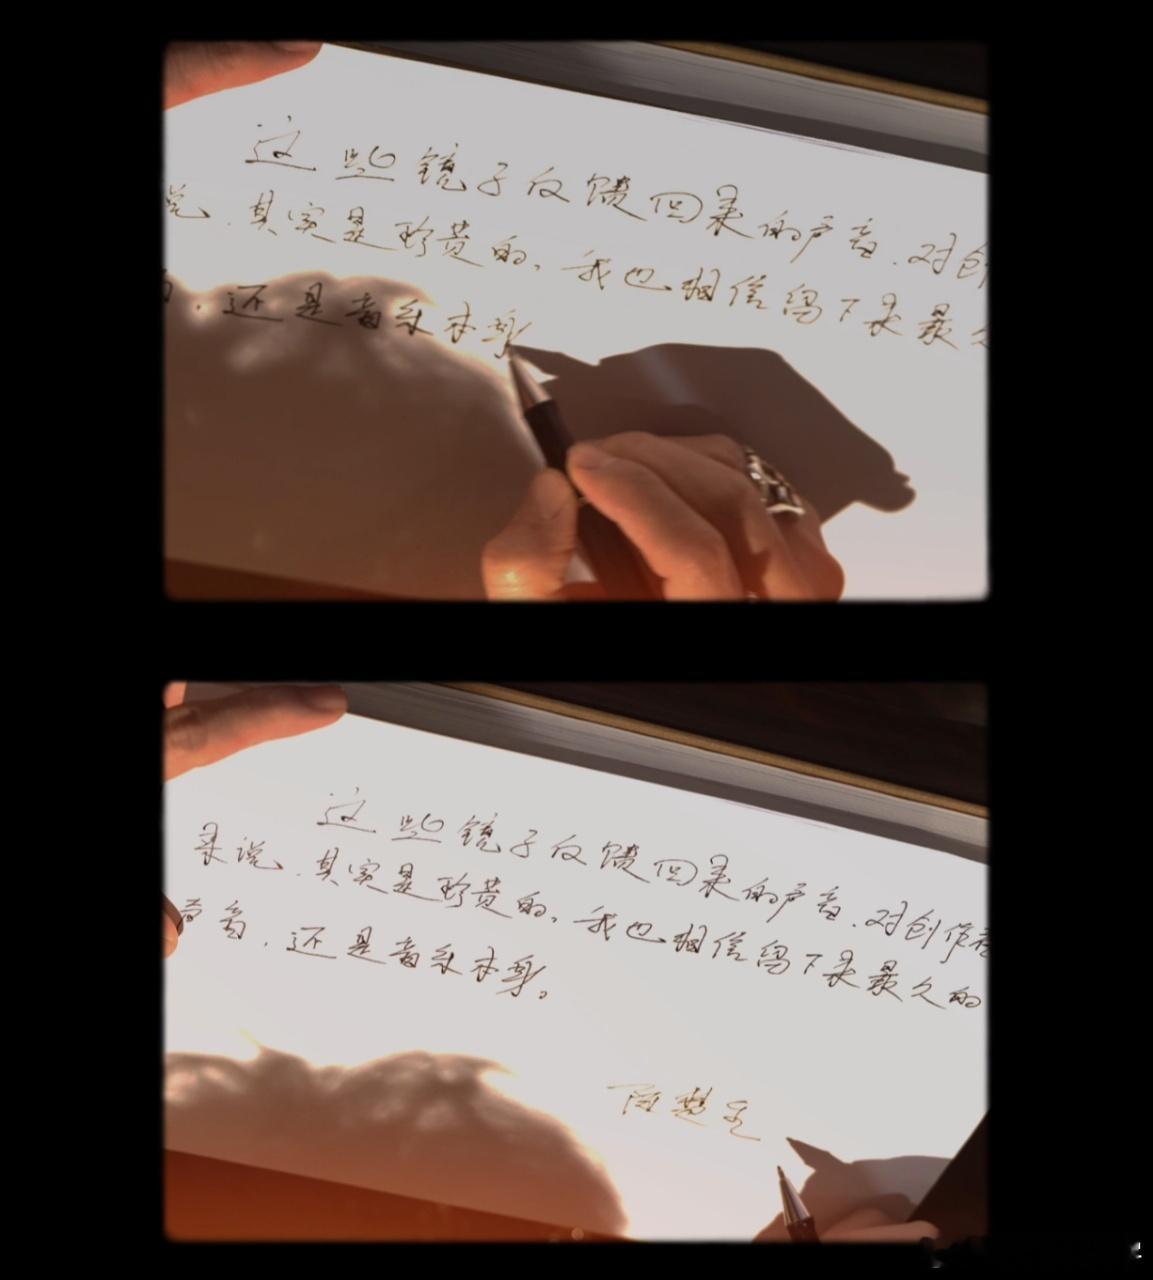 这些镜子反馈回来的声音.对创
说.其实是珍贵的,我也相信留下来最久
.还是音乐本身
这些镜子反馈回来的声音.对创作者
来说.其实是珍贵的,我也相信留下来最久的
声音.还是音乐本身。
陈楚生